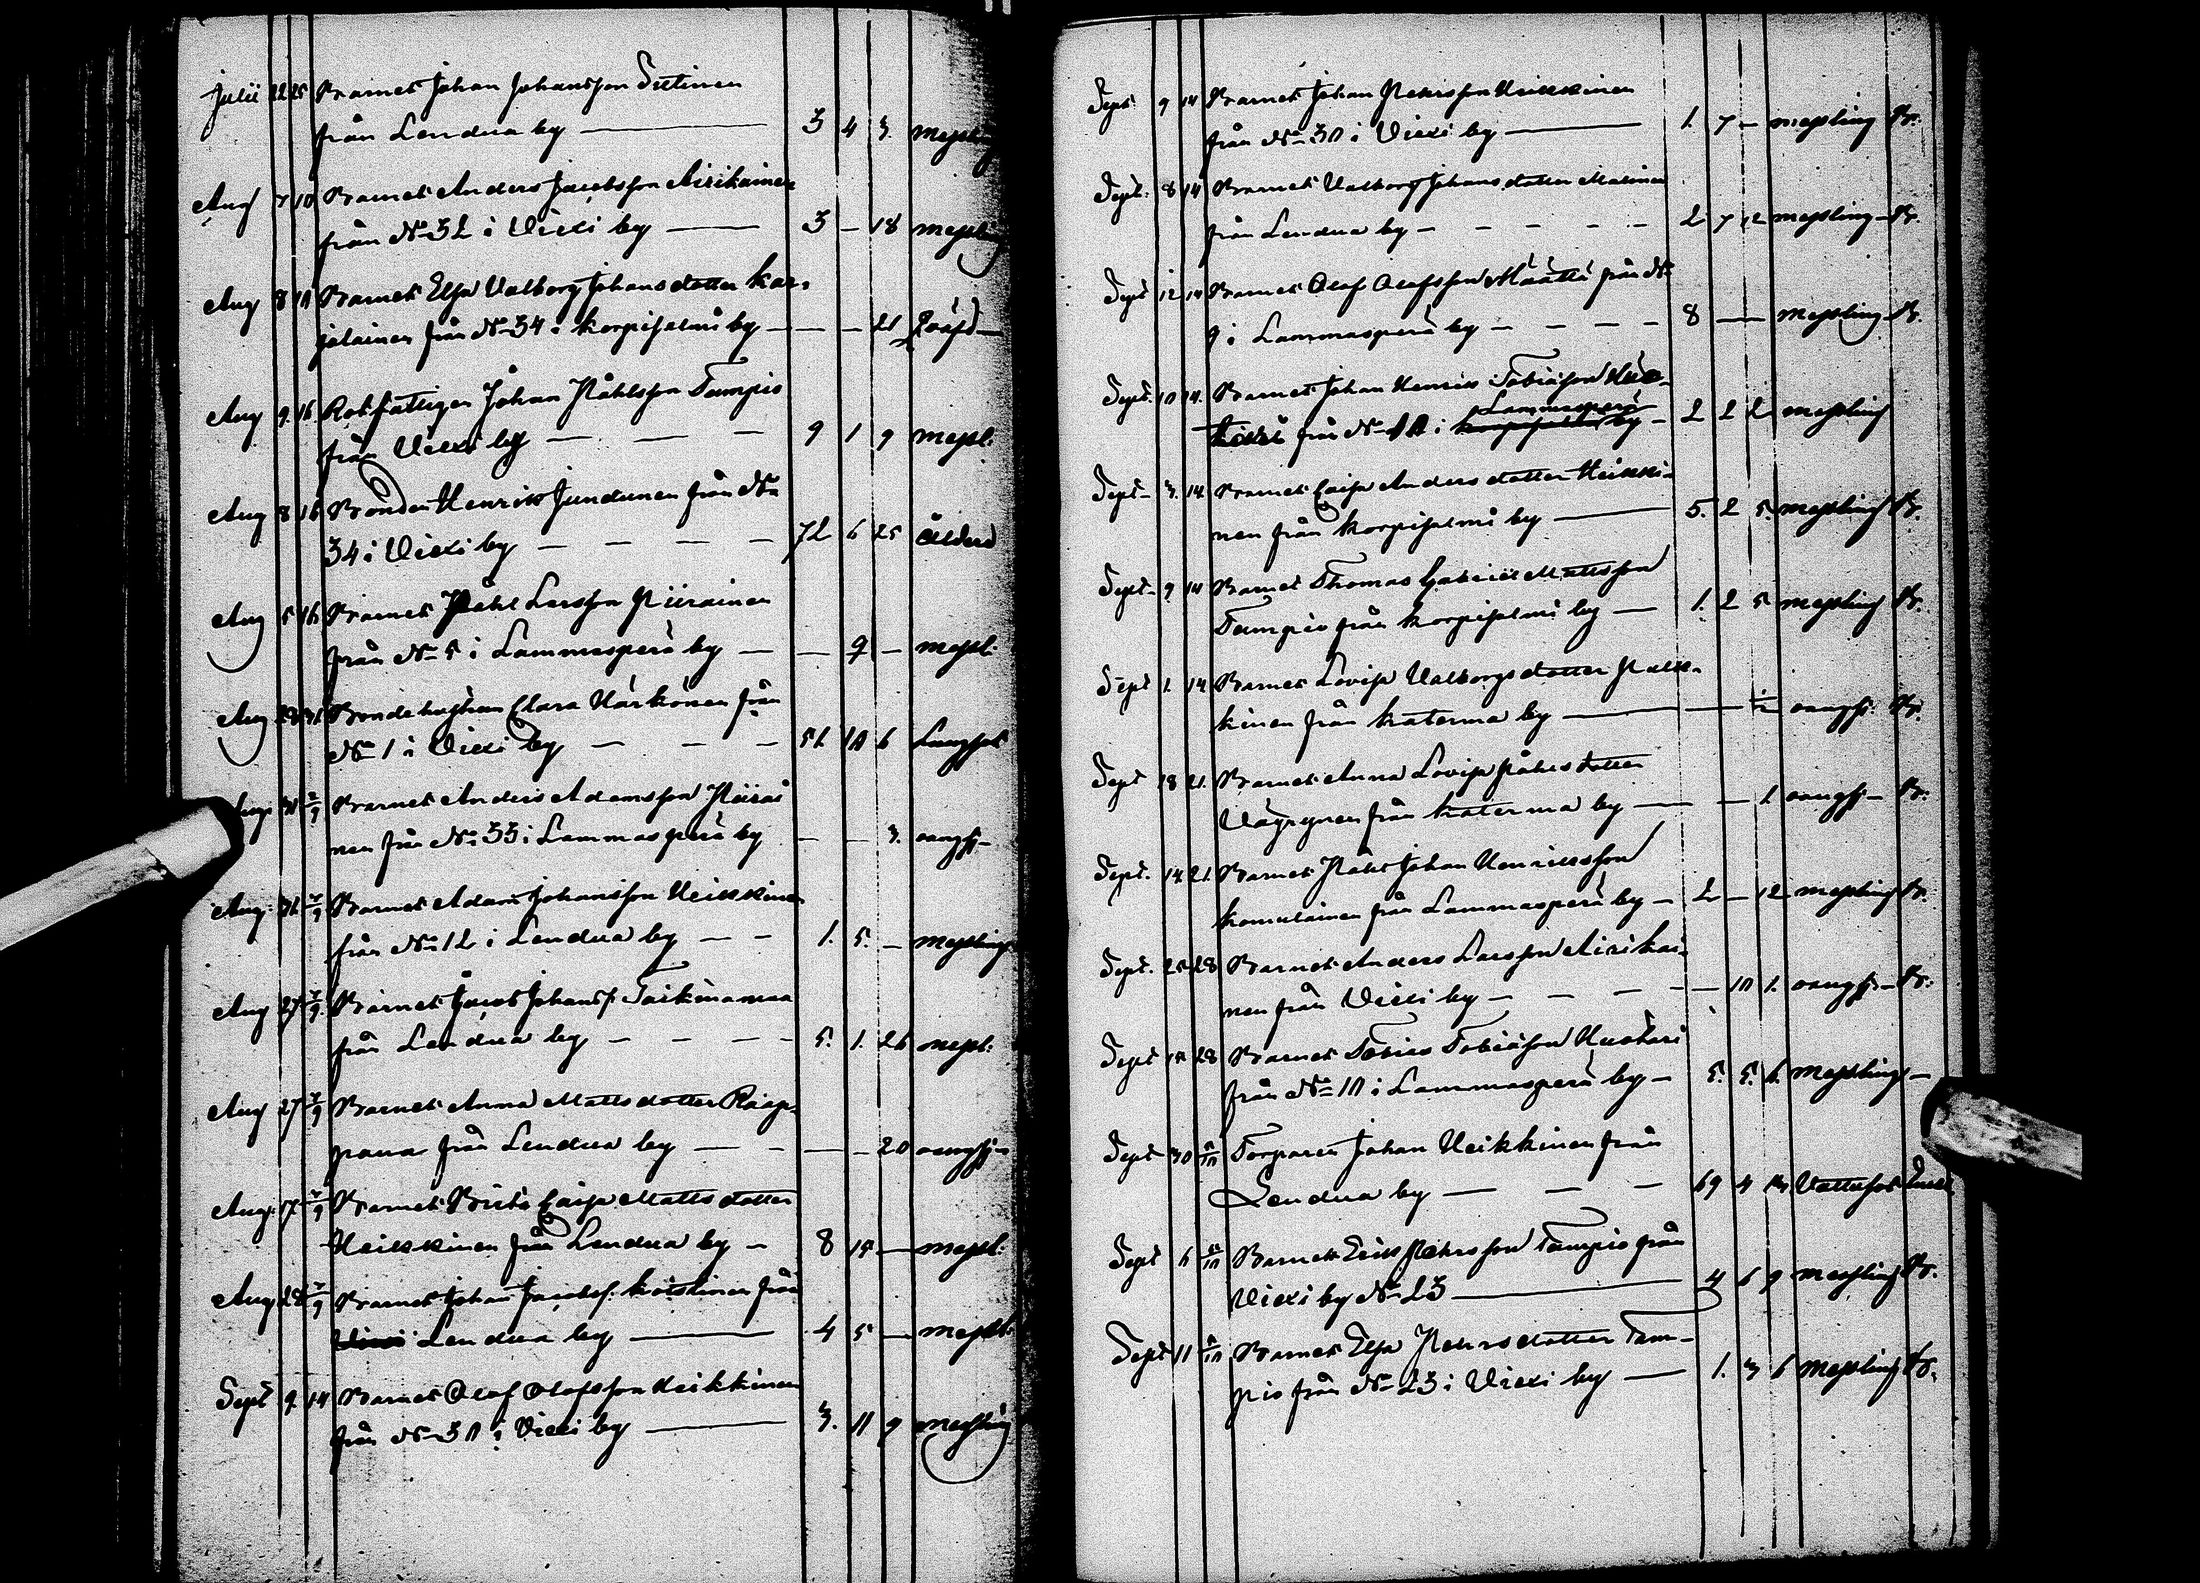 Julii 22 25 Barnet Johan Johansson Tietinen
från Lendua by — 3 4 3. messling
Aug 7 10 Barnet Anders Jacobsson Airikainen
från No 32 i Viexi by — 3 – 18 messling
Aug 8 10 Barnet Elsa Valborg Johansdotter Kar-
jalainen från No 34 i Korpisalmi by — — — 21
Aug 9. 16. Rotfattigen Johan Påhlsson Tampio
från Viexi by — — — 9 1 9 messl:
Aug 8 16 Bonden Henrik Jundunen från No
34 i Viexi by — — — — 72 6 25 Ålderd
Aug 5 16 Barnet Påhl Larsson Piirainen
från No 5 i Lammasperä by — — 9 — messl:
Aug 28 31 Bondehustrun Clara Härkönen från
No 1 i Viexi by — — — 51 10 6 Lungsot
Aug: 31 7/9 Barnet Anders Adamsson Piirai
nen från No 33 i Lammasperä by — — 3. oangif–
Aug: 31 7/9 Barnet Adam Johansson Heikkinen
från No 12 i Lendua by — — 1. 5. – messling
Aug 27 7/9 Barnet Jacob Johanss: Taikinamaa
från Lendua by — — — — 5. 1. 26 messl:
Aug 27 7/9 Barnet Anna Mattsdotter Räap-
pana från Lendua by — — — – 20 oangif–
Aug: 17. 7/9 Barnet Brita Caisa Mattsdotter
Heikkinen från Lendua by – 8 15 — messl.
Aug 28 7/9 Barnet Johan Jacobs: Koistinen från
Lendua by — 4 5 — messl:
Sept 9 14 Barnet Olof Olofsson Heikkinen
från No 30 i Viexi by — 3. 11 9 messling
Sept 9 14 Barnet Johan Pehrsson Heikkinen
från No 30 i Viexi by — 1. 7 – messling Br.
Sept: 8 14 Barnet Valborg Johansdotter Malinen
från Lendua by – – – – – 2 7 12 messling – Br.
Sept 12 14 Barnet Olof Olofsson Määttä från No
9 i Lammasperä by – – – – 8 — — messling Br.
Sept. 10 14. Barnet Johan Henrik Tobiasson
från No 10 i Lammasperä by – 2 2 2 messling
Sept– 3. 14. Barnet Caisa Andersdotter Heikki-
nen från Korpisalmi by — 5. 2 5. messling Br.
Sept– 9 14 Barnet Thomas Gabriel Mattsson
Tampio från Korpisalmi by — 1. 2 5 messling Br.
Sept 1. 14 Barnet Lovisa Valborgsdotter Pulk-
kinen från Katerma by — — — 1/2 oangif: Br.
Sept 18 21. Barnet Anna Lovisa Påhlsdotter
Väyrynen från Katerma by — — 1 oangif– Br.
Sept. 14 21. Barnet Påhl Johan Henricksson
Komulainen från Lammasperä by – 2 – 12 messling Br.
Sept. 25 28 Barnet Anders Larsson Airikai-
nen från Viexi by – – – – — 10 1. oangif – Br.
Sept 15 28 Barnet Tobias Tobiasson
från No 10 i Lammasperä by – 5. 5. 6. messling –
Sept 30 5/10 Torparen Johan Heikkinen från
Lendua by — — — 69 4 Vattusot
Sept 6 5/10 Barnet Erik Pehrsson Tampio från
Viexi by No 23 — 4 6 9 messling Br.
Sept 11 5/10 Barnet Elsa Pehrsdotter Tam-
pio från No 23 i Viexi by — 1. 3 6 messling Br.